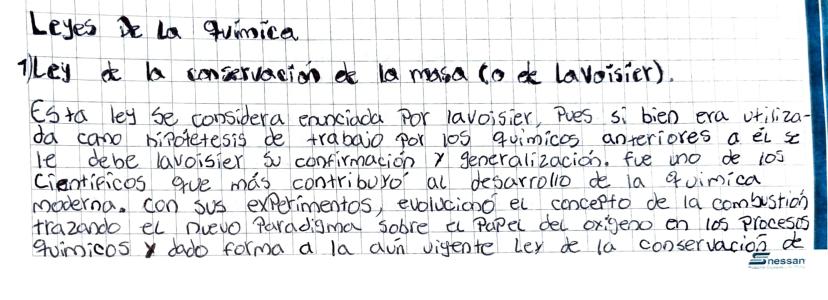 Leyes De La Química
1) Ley de la conservación de la masa (o de Lavoisier).
Esta ley se considera enunciada Por lavoisier, Pues si bien era utiliza-
da como hipotetesis de trabajo por los químicos anteriores a él se
le debe lavoisier su confirmación y generalización. fue uno de los
Científicos que más contribuyó al desarrollo de la química
moderna. con sus experimentos, evolucionó el concepto de la combustión
trazando el nuevo Paradigma sobre el Papel del oxígeno en los Procesos
químicos y dado forma a la aún vigente Ley de la conservación de
Snessan